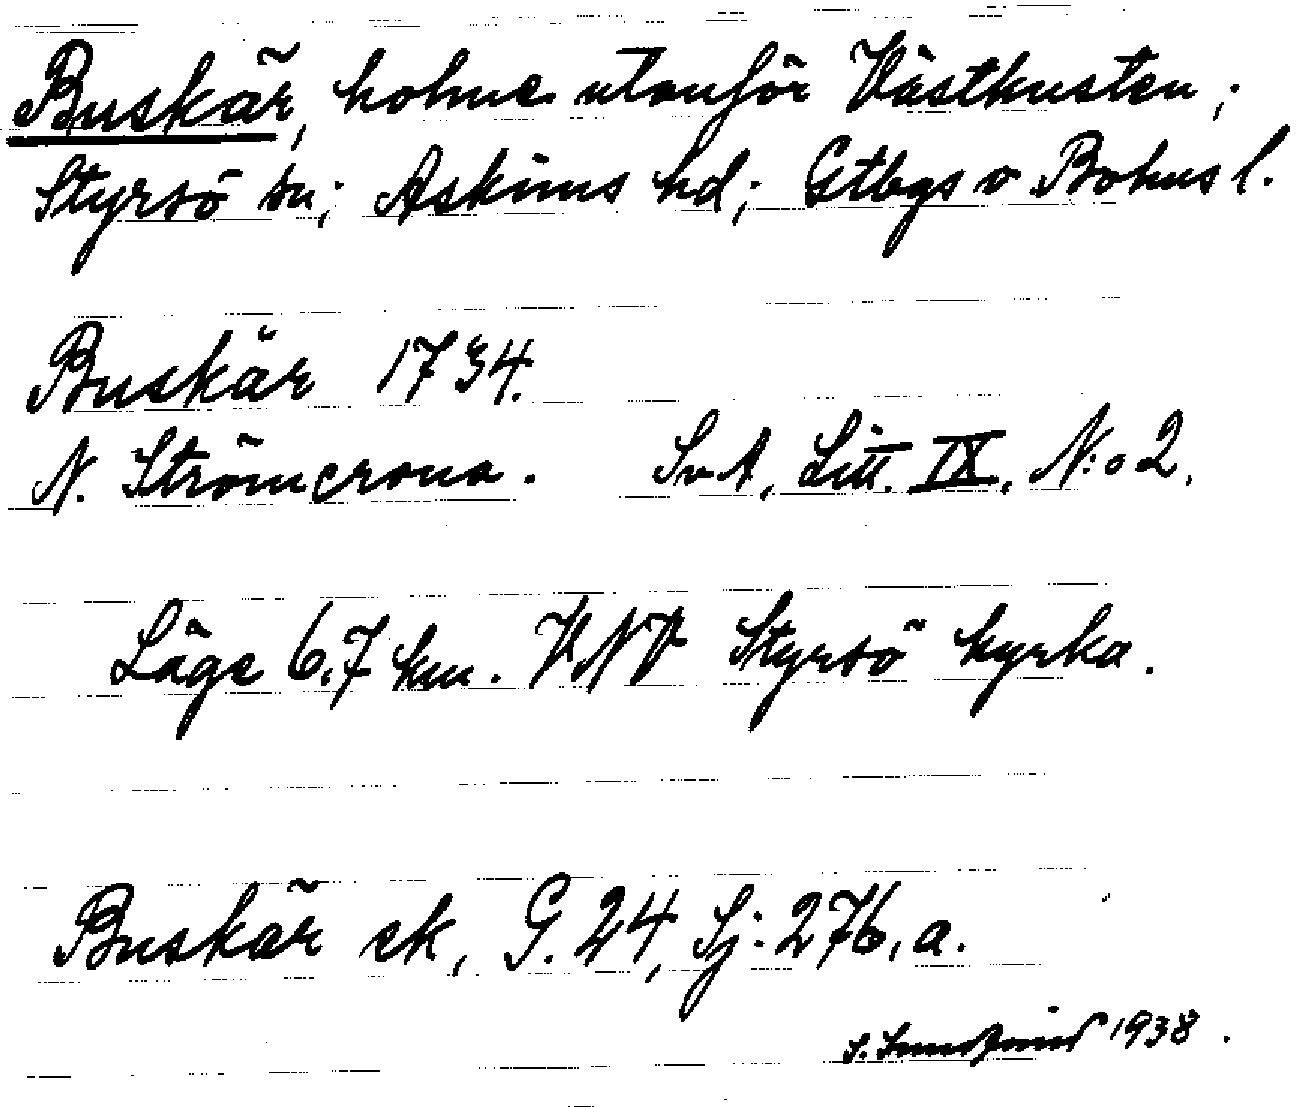 Buskär, holme utanför Västkusten;
Styrsö sn; Askims hd; Gtbgs o Bohus l.
Buskär 1734.
N. Strömcrona. SvA, Litt. IX, N:o 2.
Läge 6,7 km. VNV Styrsö kyrka.
Buskär ek, G. 24, Sj: 276, a.
S. 1938.